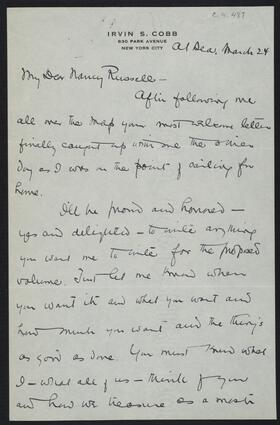 C.4.487
IRVIN S. COBB
830 PARK AVENUE
NEW YORK CITY
At Sea, March 24
My Dear Nancy Russell—
After following me
all over the map your most welcome letter
finally caught up with me the other
day as I was on the point of sailing for
home.
I'll be proud and honored—
yes and delighted—to write anything
you want me to write for the proposed
volume. Just let me know when
you want it and what you want and
how much you want and the thing's
as good as done. You must know what
I—what all of us—think of you
and how we treasure as a most